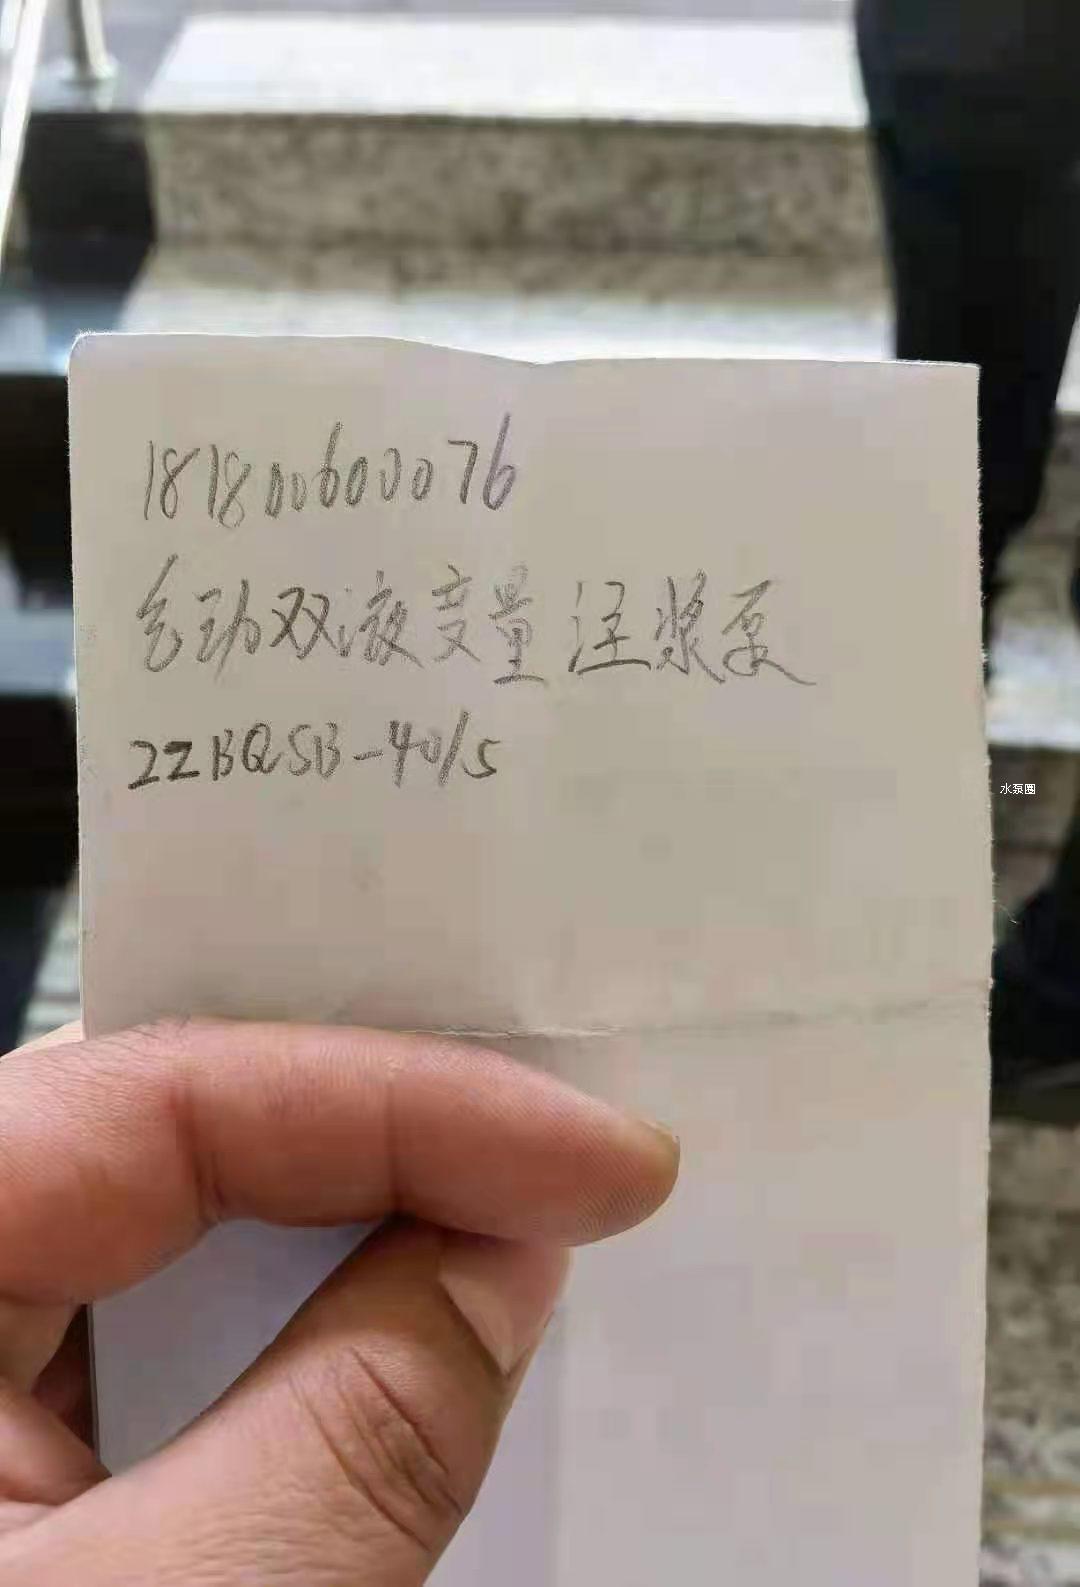 18180060076
气动双液变量注浆泵
2ZBQSB-40/5
水泵圈